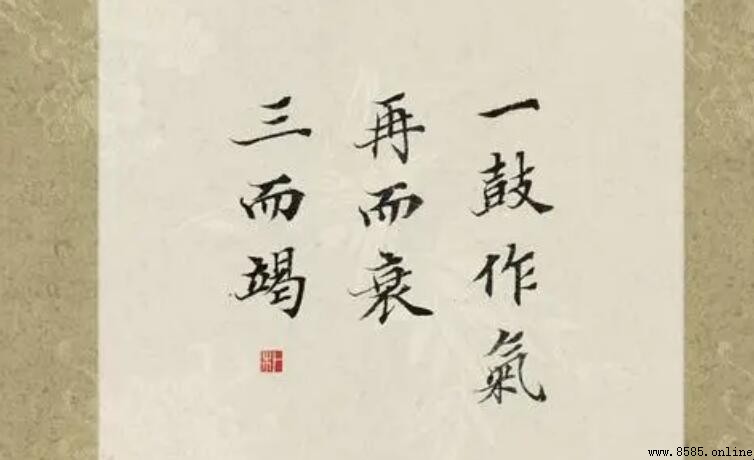 一鼓作氣
再而衰
三而竭
www.8585.online